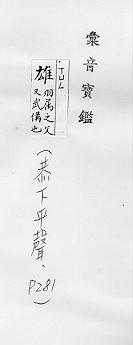 彙音寶鑑
雄
羽属之父
又武也
(恭下平聲, P281)